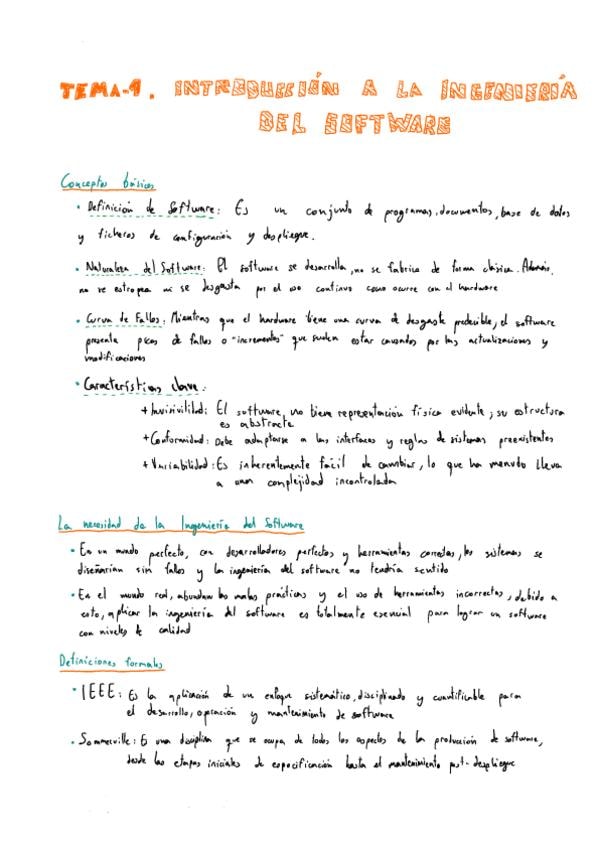 TEMA-1. INTRODUCCIÓN A LA INGENIERÍA
DEL SOFTWARE
Conceptos básicos
• Definición de Software: Es un conjunto de programas, documentos, base de datos
y ficheros de configuración y despliegue.
• Naturaleza del Software: El software se desarrolla, no se fabrica de forma clásica. Además,
no se estropea ni se desgasta por el uso continuo como ocurre con el hardware
• Curva de Fallos: Mientras que el hardware tiene una curva de desgaste predecible, el software
presenta picos de fallos o "incrementos" que suelen estar causados por las actualizaciones y
modificaciones
• Características clave:
+ Invisivilidad: El software no tiene representación física evidente; su estructura
es abstracta
+ Conformidad: Debe adaptarse a las interfaces y reglas de sistemas preexistentes
+ Variabilidad: Es inherentemente fácil de cambiar, lo que ha menudo lleva
a una complejidad incontrolada
La necesidad de la Ingeniería del Software
• En un mundo perfecto, con desarrolladores perfectos y herramientas correctas, los sistemas se
diseñarían sin fallos y la ingeniería del software no tendría sentido
• En el mundo real, abundan las malas prácticas y el uso de herramientas incorrectas, debido a
esto, aplicar la ingeniería del software es totalmente esencial para lograr un software
con niveles de calidad
Definiciones formales
• IEEE: Es la aplicación de un enfoque sistemático, disciplinado y cuantificable para
el desarrollo, operación y mantenimiento de software
• Sommerville: Es una disciplina que se ocupa de todos los aspectos de la producción de software,
desde las etapas iniciales de especificación hasta el mantenimiento post-despliegue